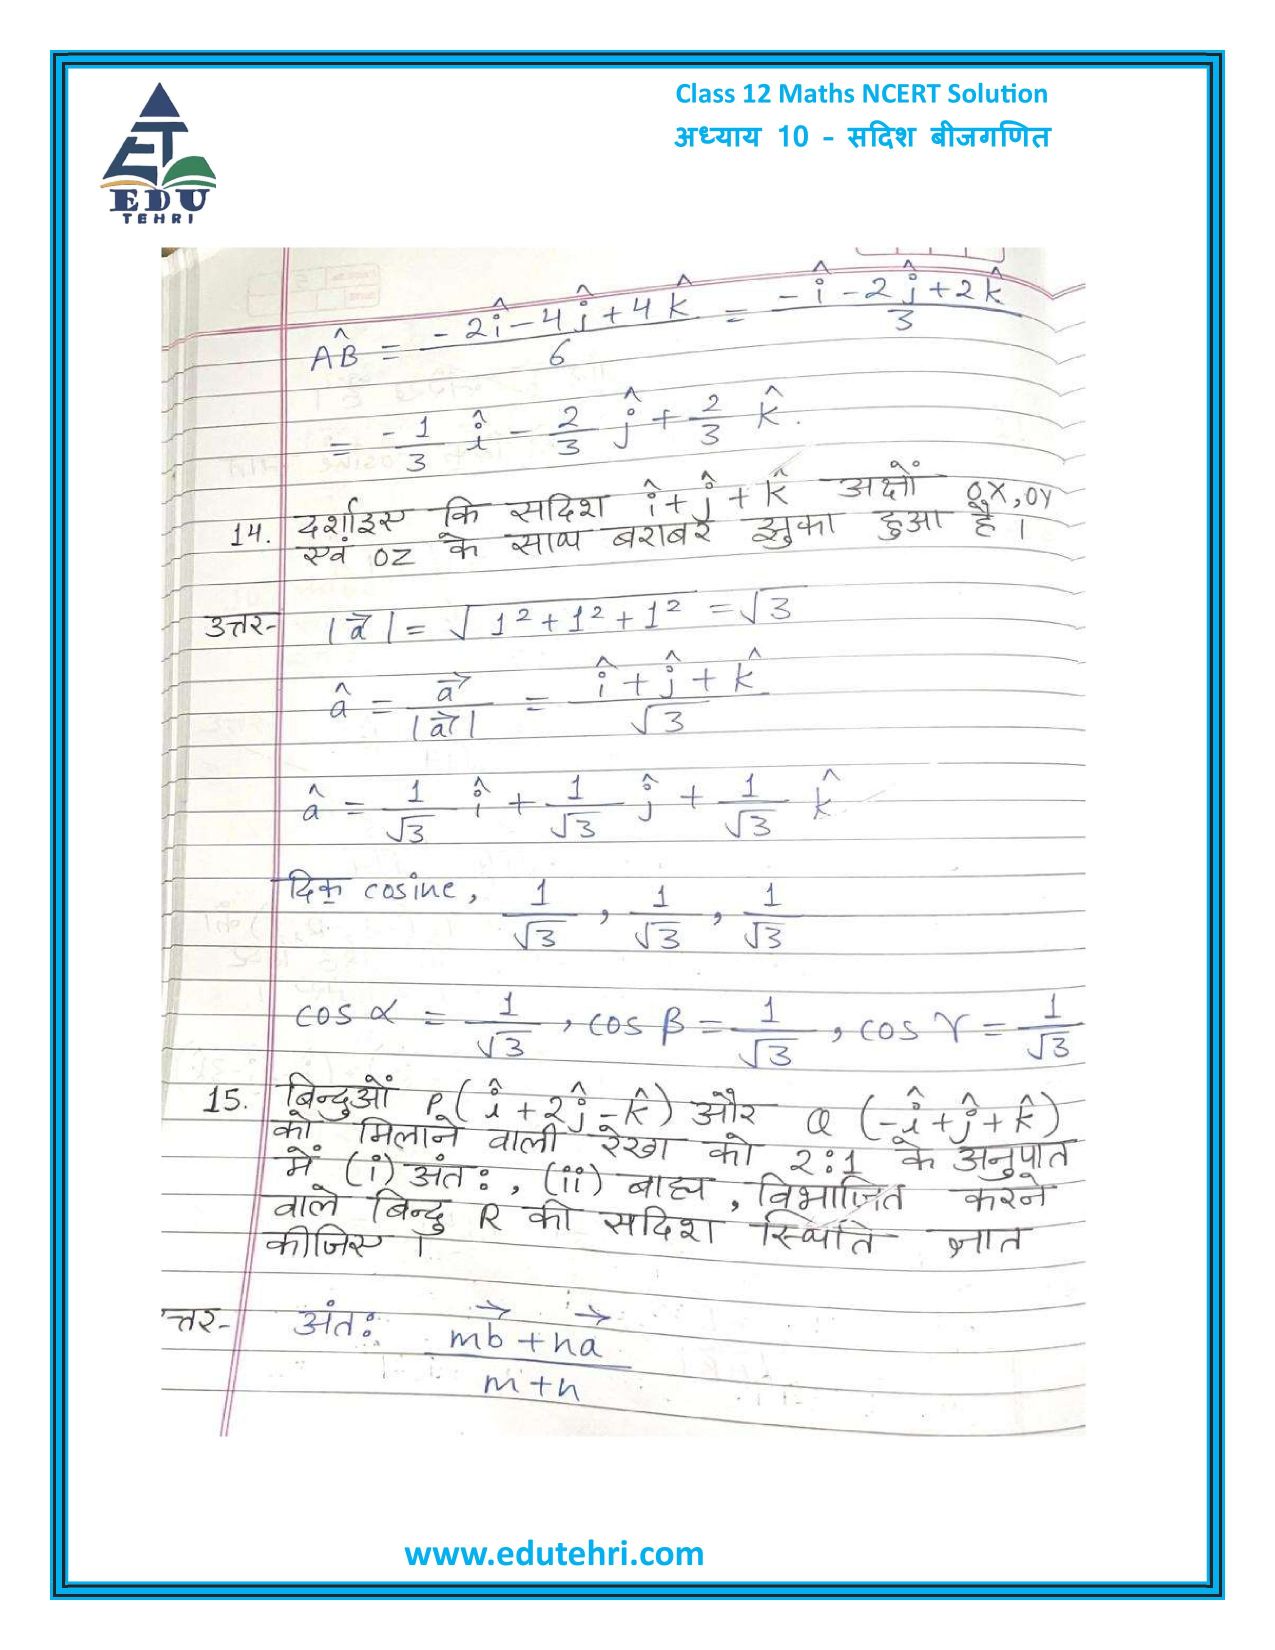 Class 12 Maths NCERT Solution
अध्याय 10 - सदिश बीजगणित
EDU
TEHRI
ÂB = (-2î - 4ĵ + 4k̂)/6 = (-î - 2ĵ + 2k̂)/3
= -1/3 î - 2/3 ĵ + 2/3 k̂.
14. दर्शाइए कि सदिश î + ĵ + k̂ अक्षों OX, OY
एवं OZ के साथ बराबर झुका हुआ है।
उत्तर- |a⃗| = √(1² + 1² + 1²) = √3
â = a⃗/|a⃗| = (î + ĵ + k̂)/√3
â = 1/√3 î + 1/√3 ĵ + 1/√3 k̂
दिक् cosine, 1/√3, 1/√3, 1/√3
cos α = 1/√3, cos β = 1/√3, cos γ = 1/√3
15. बिन्दुओं P(î + 2ĵ - k̂) और Q (-î + ĵ + k̂)
को मिलाने वाली रेखा को 2:1 के अनुपात
में (i) अंतः, (ii) बाह्य, विभाजित करने
वाले बिन्दु R की सदिश स्थिति ज्ञात
कीजिए।
त्तर- अंतः (mb⃗ + na⃗)/(m+n)
www.edutehri.com